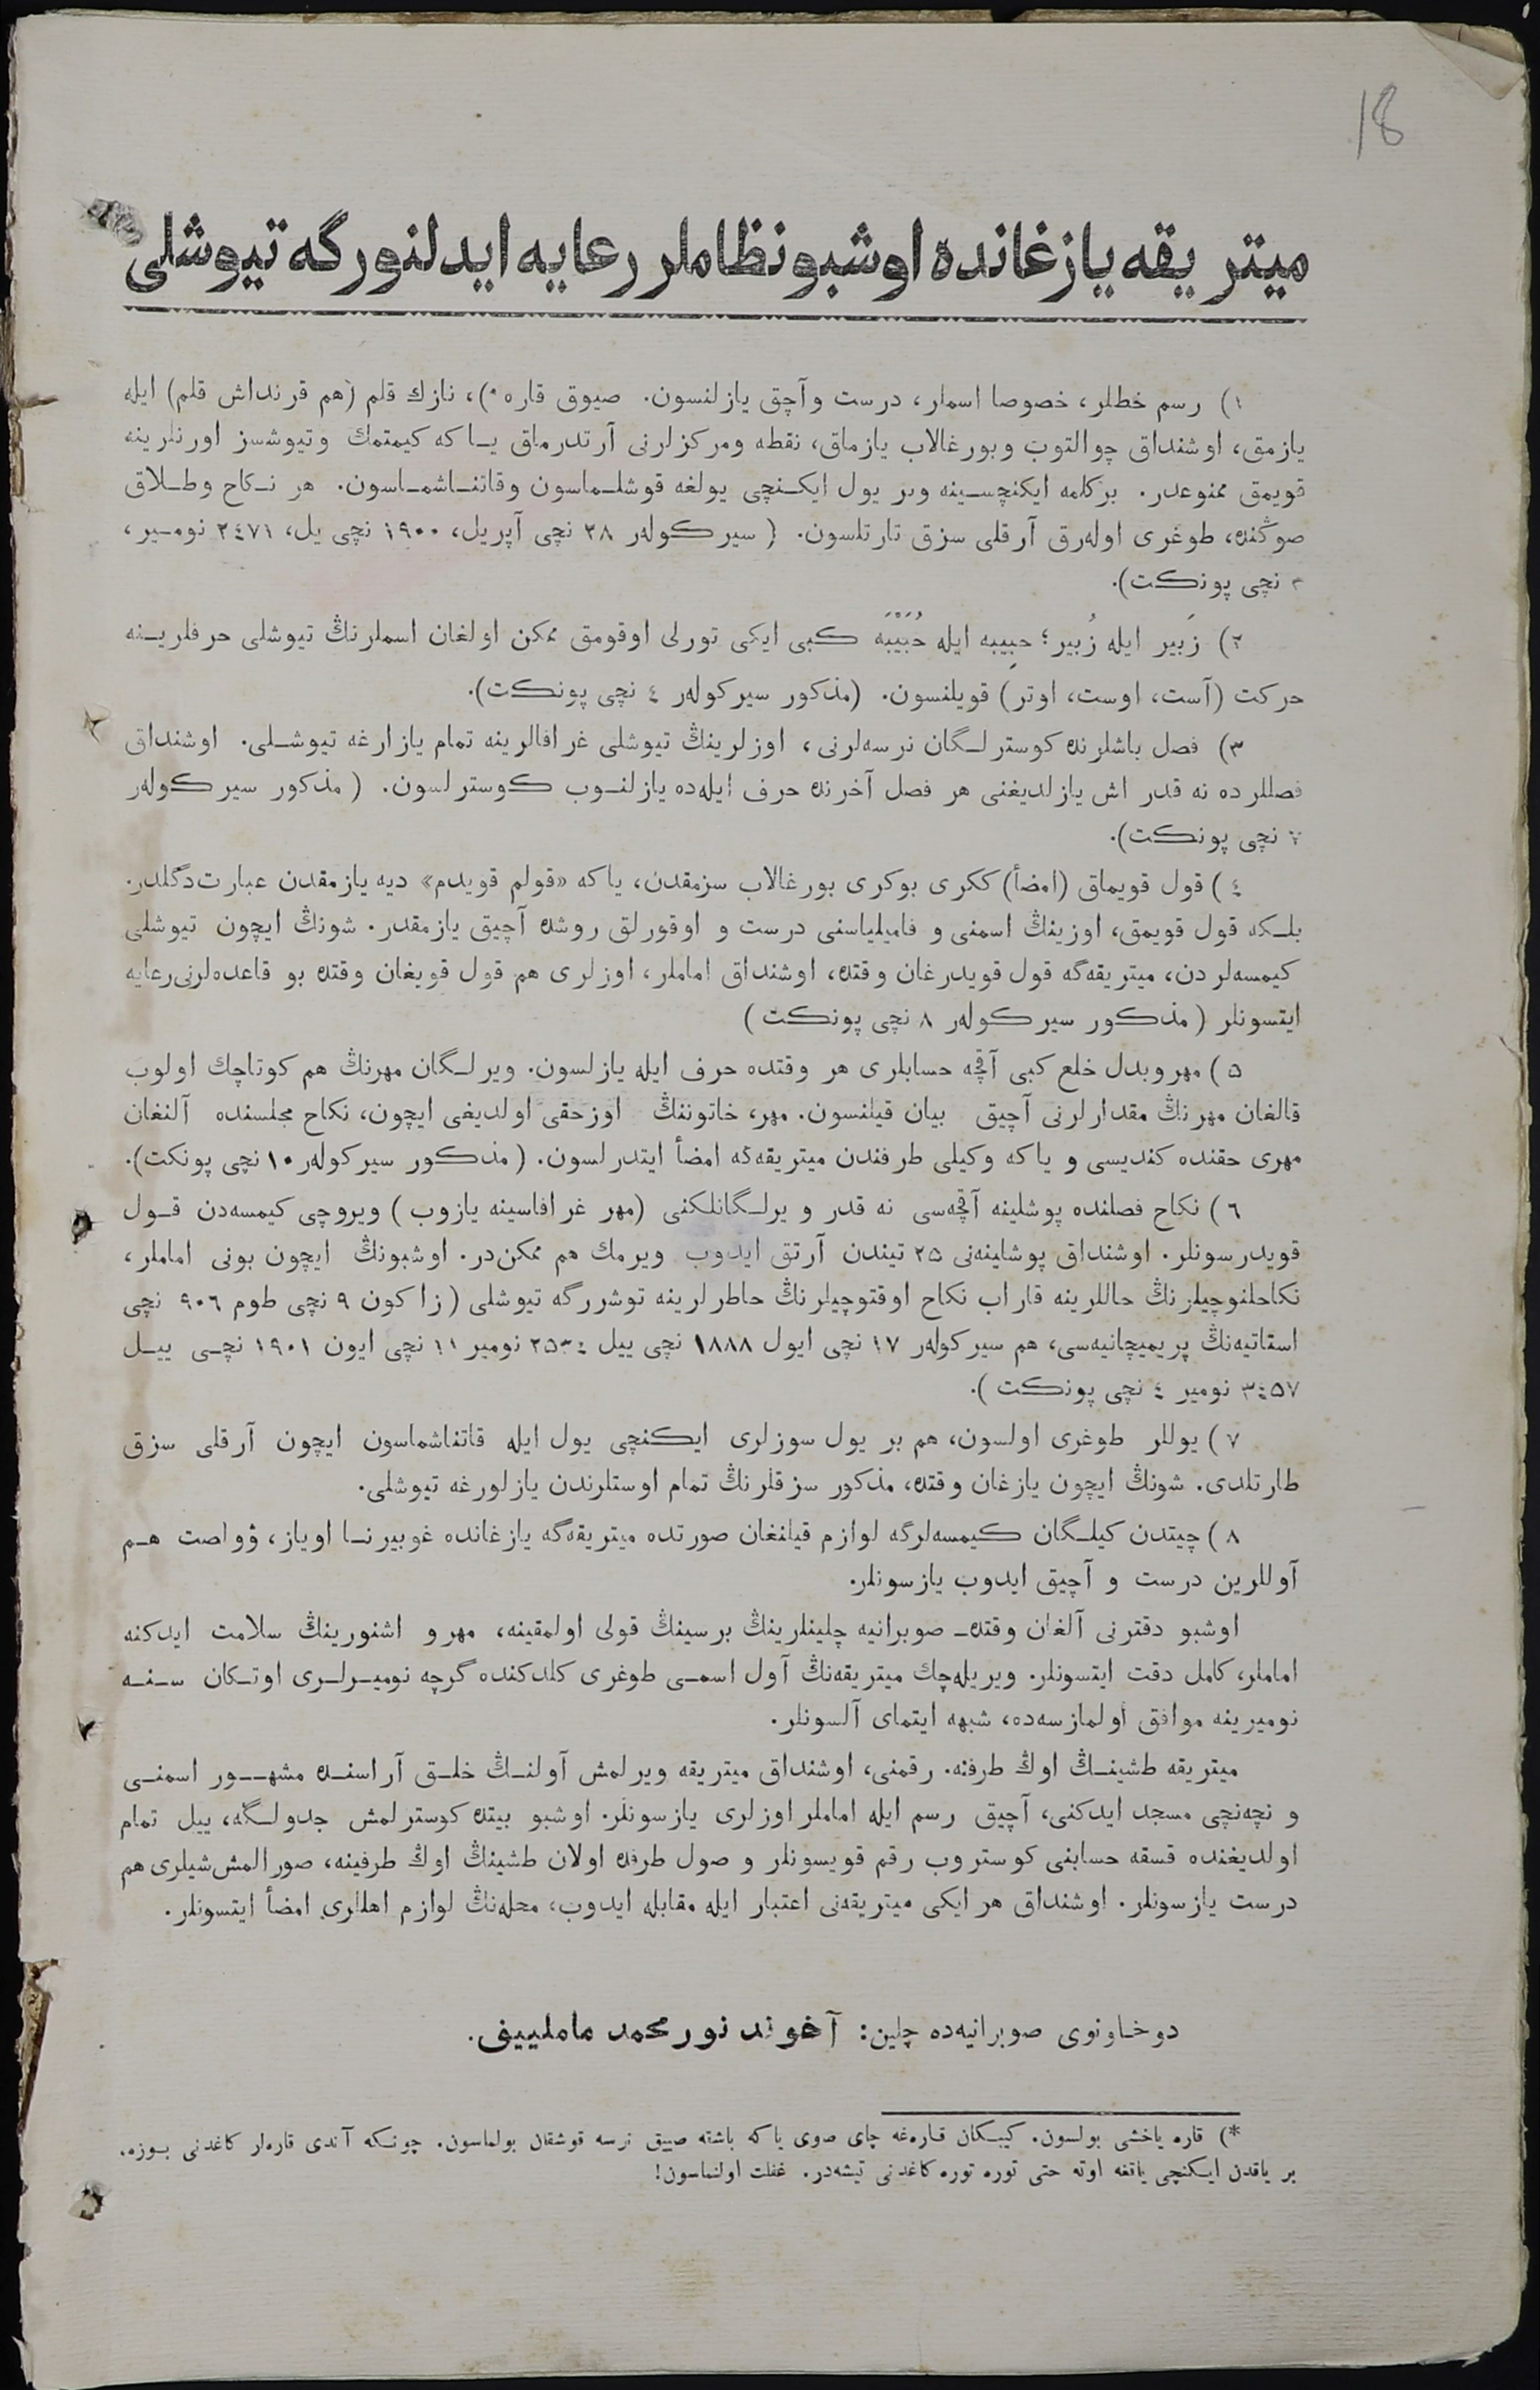 18
میتریقه یازغانده اوشبو نظاملر رعایه ایدلنورگه تیوشلی
۱) رسم خطلر، خصوصا اسمار، درست وآچق یازلنسون. صیوق قاره *)، نازك قلم (هم قرنداش قلم) ایله
یازمق، اوشنداق چوالتوب وبورغالاب یازماق، نقطه ومرکزلرنی آرتدرماق یـا که کیمتمك وتیوشسز اورنلرینه
قویمق ممنوعدر. برکلمه ایکنچسـینه وبر یول ایکـنچی یولغه قوشلـماسون وقاتنـاشمـاسون. هر نـکاح وطـلاق
صوڭنده، طوغری اولەرق آرقلی سزق تارتلسون. ( سیرکولەر ۲۸ نچی آپریل، ۱۹۰۰ نچی یل، ۲٤۷۱ نومـیر،
نچی پونکت).
۲) زَبیر ایله زُبیر؛ حبِیبه ایله حُبَیْبَه کبی ایکی تورلی اوقومق ممکن اولغان اسملرنڭ تیوشلی حرفلریـنه
حرکت (آست، اوست، اوتر) قویلنسون. (مذکور سیرکولەر ٤ نچی پونکت).
۳) فصل باشلرنده کوسترلـگان نرسەلرنی، اوزلرینڭ تیوشلی غرافالرینه تمام یازارغه تیوشـلی. اوشنداق
فصللرده نه قدر اش یازلدیغنی هر فصل آخرنده حرف ایلەده یازلنـوب کوسترلسون. ( مذکور سیرکولەر
۷ نچی پونکت).
٤) قول قویماق (امضأ) ککری بوکری بورغالاب سزمقدن، یاکه «قولم قویدم» دیه یازمقدن عبارت دگلدر.
بلـکه قول قویمق، اوزینڭ اسمنی و فامیلیاسنی درست و اوقورلق روشده آچیق یازمقدر. شونڭ ایچون تیوشلی
کیمسەلردن، میتریقەگه قول قویدرغان وقتده، اوشنداق اماملر، اوزلری هم قول قویغان وقتده بو قاعدەلرنی رعایه
ایتسونلر ( مذکور سیرکولەر ۸ نچی پونکت )
۵) مهر وبدل خلع کبی آقچه حسابلری هر وقتده حرف ایله یازلسون. ویرلـگان مهرنڭ هم کوتاچك اولوب
قالغان مهرنڭ مقدارلرنی آچیق بیان قیلنسون. مهر، خاتوننڭ اوزحقی اولدیغی ایچون، نکاح مجلسنده آلنغان
مهری حقنده کندیسی و یاکه وکیلی طرفندن میتریقەگه امضأ ایتدرلسون. (مذکور سیرکولەر ۱۰ نچی پونکت).
٦) نکاح فصلنده پوشلینه آقچەسی نه قدر ویرلـگانلکنی (مهر غرافاسینه یازوب) ویروچی کیمسەدن قـول
قویدرسونلر. اوشنداق پوشلینەنی ۲۵ تیندن آرتق ایدوب ویرمك هم ممکن در. اوشبونڭ ایچون بونی اماملر،
نکاحلنوچیلرنڭ حاللرینه قاراب نکاح اوقتوچیلرنڭ خاطرلرینه توشررگه تیوشلی (زاکون ۹ نچی طوم ۹۰٦ نچی
استاتیەنڭ پریمیچانیەسی، هم سیرکولەر ۱۷ نچی ایول ۱۸۸۸ نچی ییل ۲۵۳٤ نومیر ۱۱ نچی ایون ۱۹۰۱ نچـی ییـل
۳٤۵۷ نومیر ٤ نچی پونکت ).
۷) یوللر طوغری اولسون، هم بر یول سوزلری ایکنچی یول ایله قاتناشماسون ایچون آرقلی سزق
طارتلدی. شونڭ ایچون یازغان وقتده، مذکور سزقلرنڭ تمام اوستلرندن یازلورغه تیوشلی.
۸) چیتدن کیلـگان کیمسەلرگه لوازم قیلنغان صورتده میتریقەگه یازغانده غوبیرنـا اویاز، وۆلصت هـم
آوللرین درست و آچیق ایدوب یازسونلر.
اوشبو دفترنی آلغان وقتدەـ صوبرانیه چلینلرینڭ برسینڭ قولی اولمقینه، مهر و اشنورینڭ سلامت ایدکنه
اماملر، کامل دقت ایتسونلر. ویریلەچك میتریقەنڭ آول اسمـی طوغری کلدکنده گرچه نومیـرلـری اوتـکان سـنـه
نومیرینه موافق اولمازسەده، شبهه ایتمای آلسونلر.
میتریقه طشینـڭ اوڭ طرفنه. رقمنی، اوشنداق میتریقه ویرلمش آولنـڭ خلـق آراسنـده مشهـور اسمنـی
و نچەنچی مسجد ایدکنی، آچیق رسم ایله اماملر اوزلری یازسونلر. اوشبو بیتده کوسترلمش جدولـگه، ییل تمام
اولدیغنده قسقه حسابنی کوستروب رقم قویسونلر و صول طرفده اولان طشینڭ اوڭ طرفینه، صورالمش شیلری هم
درست یازسونلر. اوشنداق هر ایکی میتریقەنی اعتبار ایله مقابله ایدوب، محلەنڭ لوازم اهللری امضأ ایتسونلر.
دوخاونوی صوبرانیەده چلین: آخوند نورمحمد مامليیف.
*) قاره یاخشی بولسون. کیبـکان قارەغه چای صوی یاکه باشقه صییق نرسه قوشقان بولماسون. چونـکه آندی قارەلر کاغدنی بـوزه.
بر یاقدن ایـکنچی یاققه اوته حتی توره توره کاغدنی تیشەدر. غفلت اولنماسون!